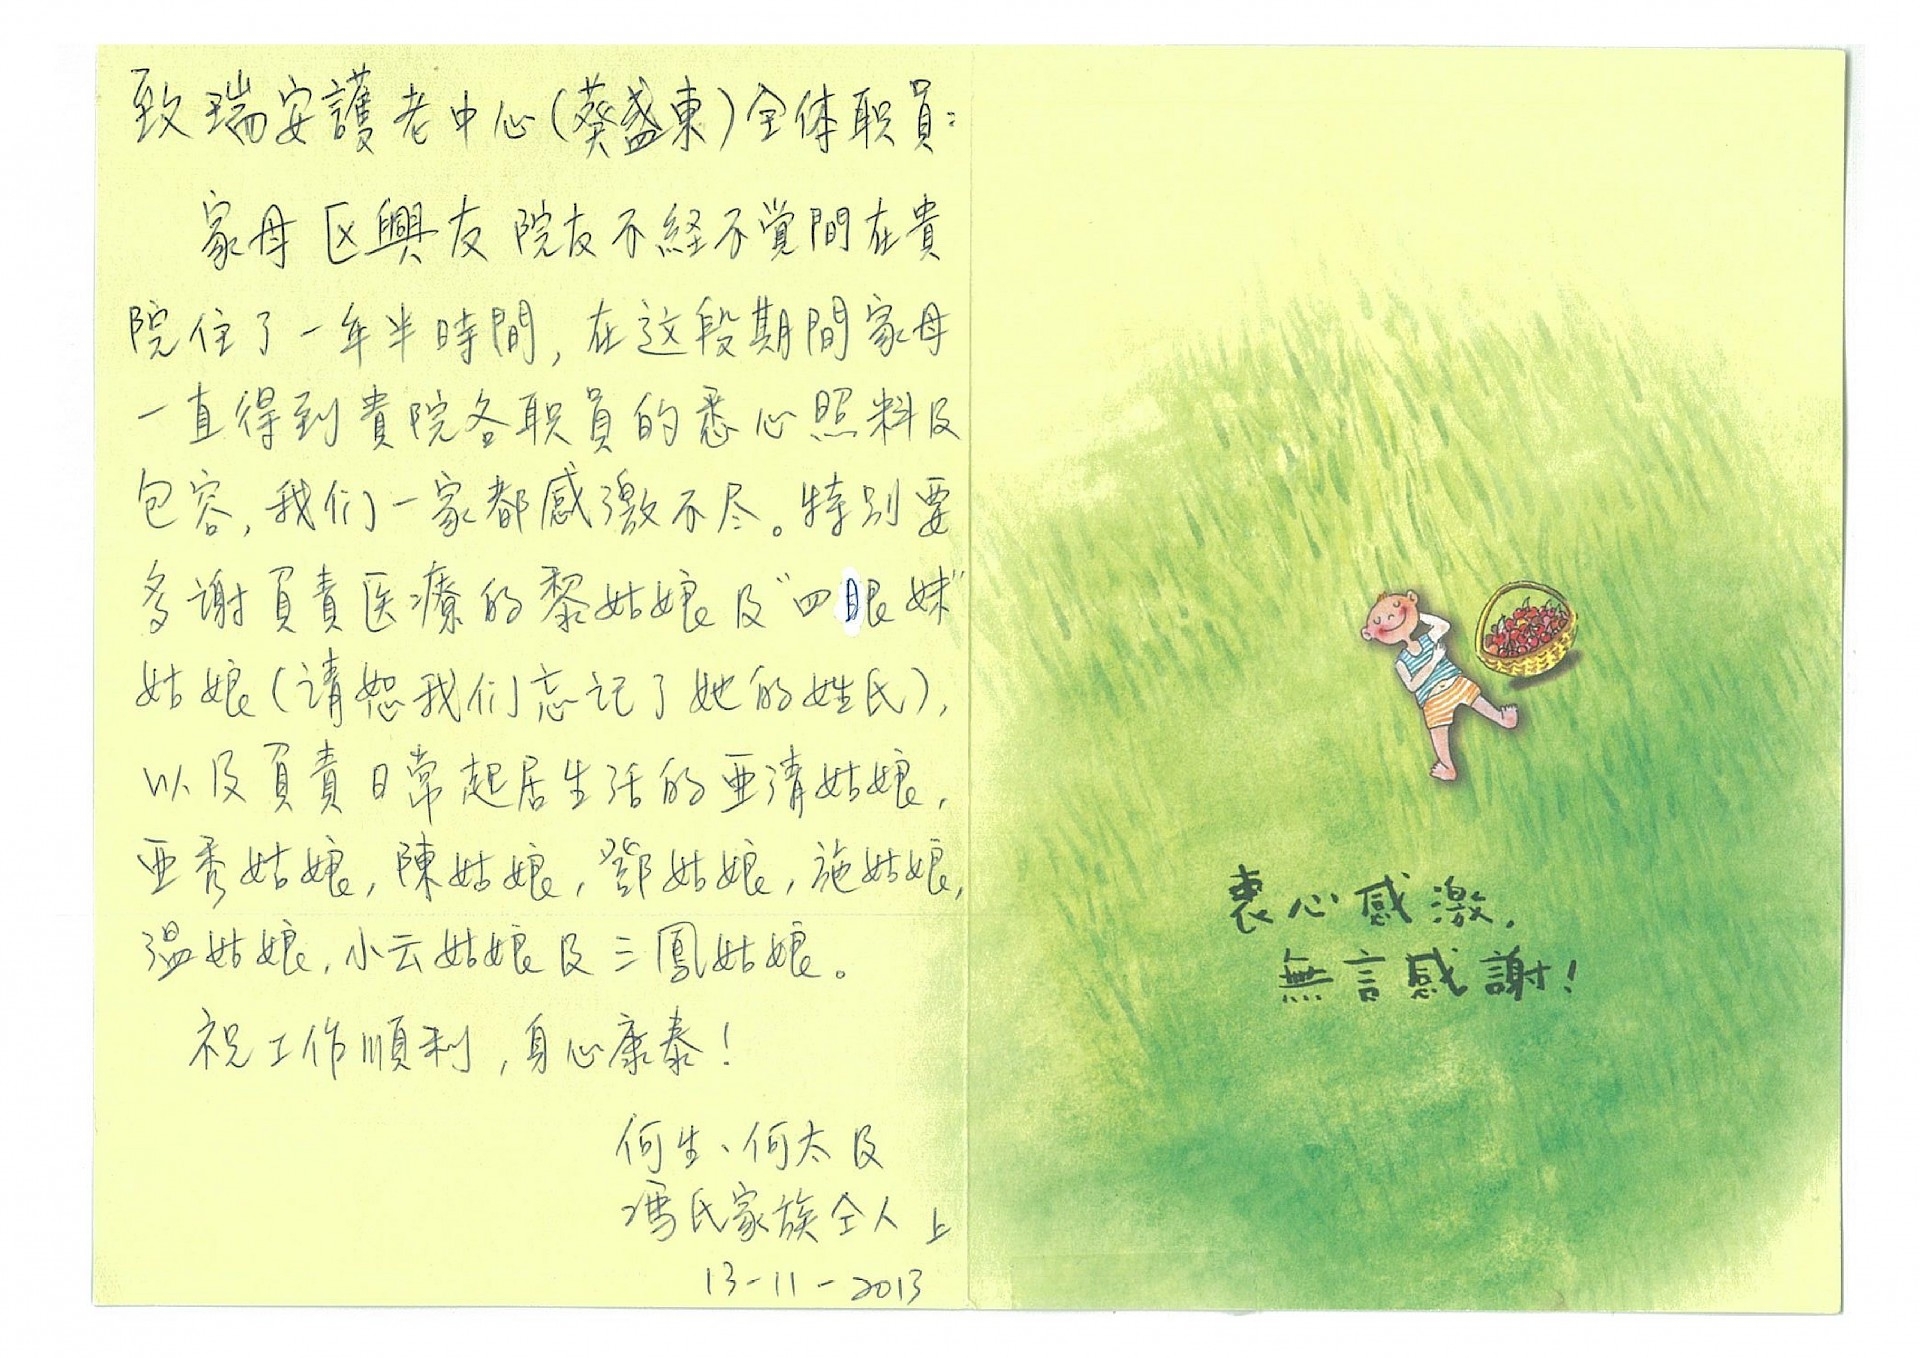 致瑞安護老中心(葵盛東)全体职員:
家母区興友院友不経不覚間在貴
院住了一年半時間,在这段期間家母
一直得到貴院各职員的悉心照料及
包容,我们一家都感激不尽。特别要
多謝負責医療的黎姑娘及"四眼妹"
姑娘(请恕我们忘记了她的姓氏),
以及負責日常起居生活的亜清姑娘,
亜秀姑娘,陳姑娘,鄧姑娘,施姑娘,
温姑娘,小云姑娘及三鳳姑娘。
祝工作順利,身心康泰!
何生、何太及
馮氏家族仝人 上
13-11-2013
衷心感激,
無言感謝!